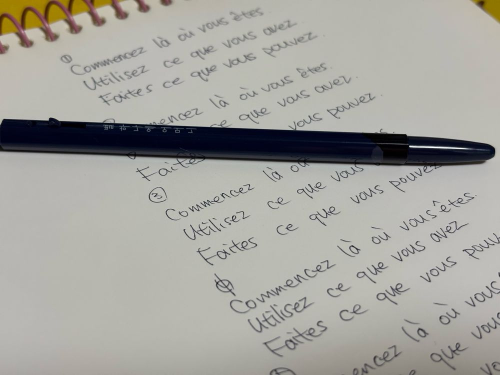 ① Commencez là où vous êtes
Utilisez ce que vous avez
Faites ce que vous pouvez.
mencez là où vous êtes.
ce que vous avez.
Faites vous pouvez.
③ Commencez là où vous
Utilisez ce que vous
Faites ce que vous pouvez
④ Commencez là où vous êtes
Utilisez ce que vous avez
Faites ce que vous pouv
encez là où vous
ce que vous
ce que